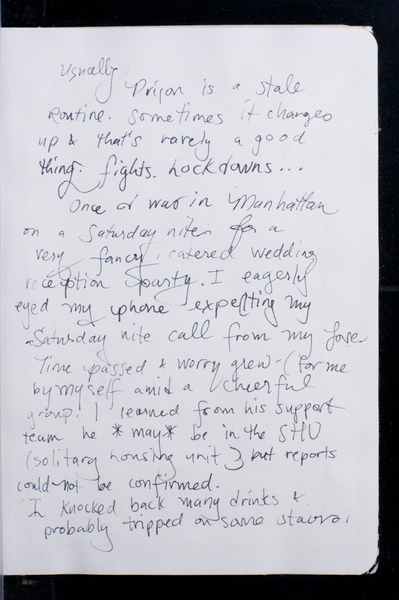 Usually,
Prison is a stale
routine. Sometimes it changes
up & that's rarely a good
thing. fights. Lockdowns...
Once I was in Manhattan
on a Saturday nite for a
very fancy, catered wedding
reception party. I eagerly
eyed my phone expecting my
Saturday nite call from my love.
Time passed & worry grew - (for me
by myself amid a cheerful
group. I learned from his support
team he *may* be in the SHU
(solitary housing unit) but reports
could not be confirmed.
I knocked back many drinks &
probably tripped on some stairs.